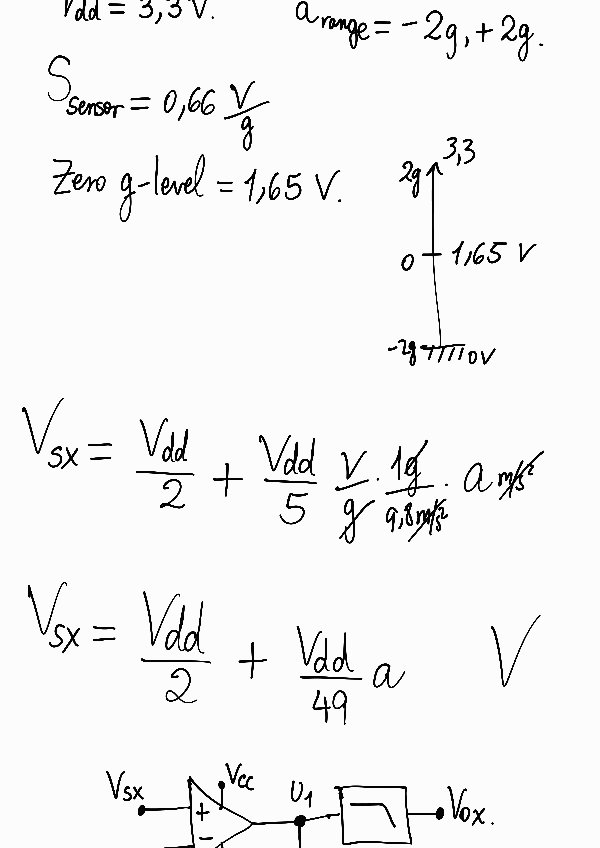 Vdd = 3,3 V. a range = -2g, +2g.
S sensor = 0,66 V/g
Zero g-level = 1,65 V.
2g 3,3
0 1,65 V
-2g 0V
Vsx = Vdd/2 + Vdd/5 V/g · 1g/9,8m/s² · a m/s²
Vsx = Vdd/2 + Vdd/49 a V
Vsx + - Vcc U1 Vox.